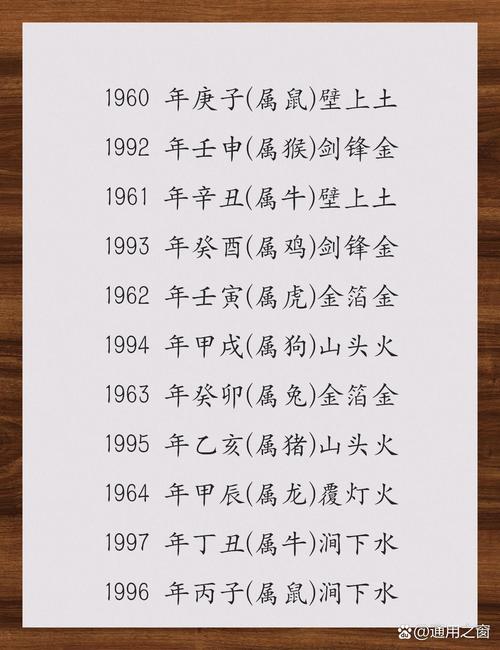 1960 年庚子(属鼠)壁上土
1992 年壬申(属猴)剑锋金
1961 年辛丑(属牛)壁上土
1993 年癸酉(属鸡)剑锋金
1962 年壬寅(属虎)金箔金
1994 年甲戌(属狗)山头火
1963 年癸卯(属兔)金箔金
1995 年乙亥(属猪)山头火
1964 年甲辰(属龙)覆灯火
1997 年丁丑(属牛)涧下水
1996 年丙子(属鼠)涧下水
@通用之窗